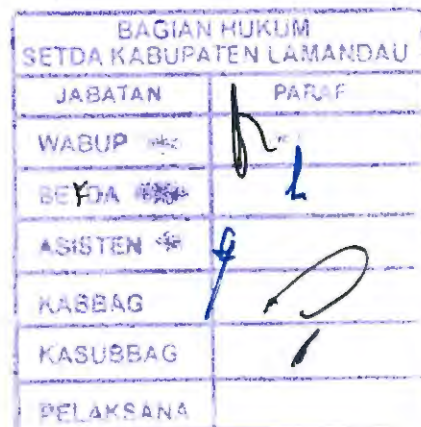 BAGIAN HUKUM
SETDA KABUPATEN LAMANDAU
JABATAN PARAF
WABUP
ASISTEN
KABBAG
KASUBBAG
PELAKSANA